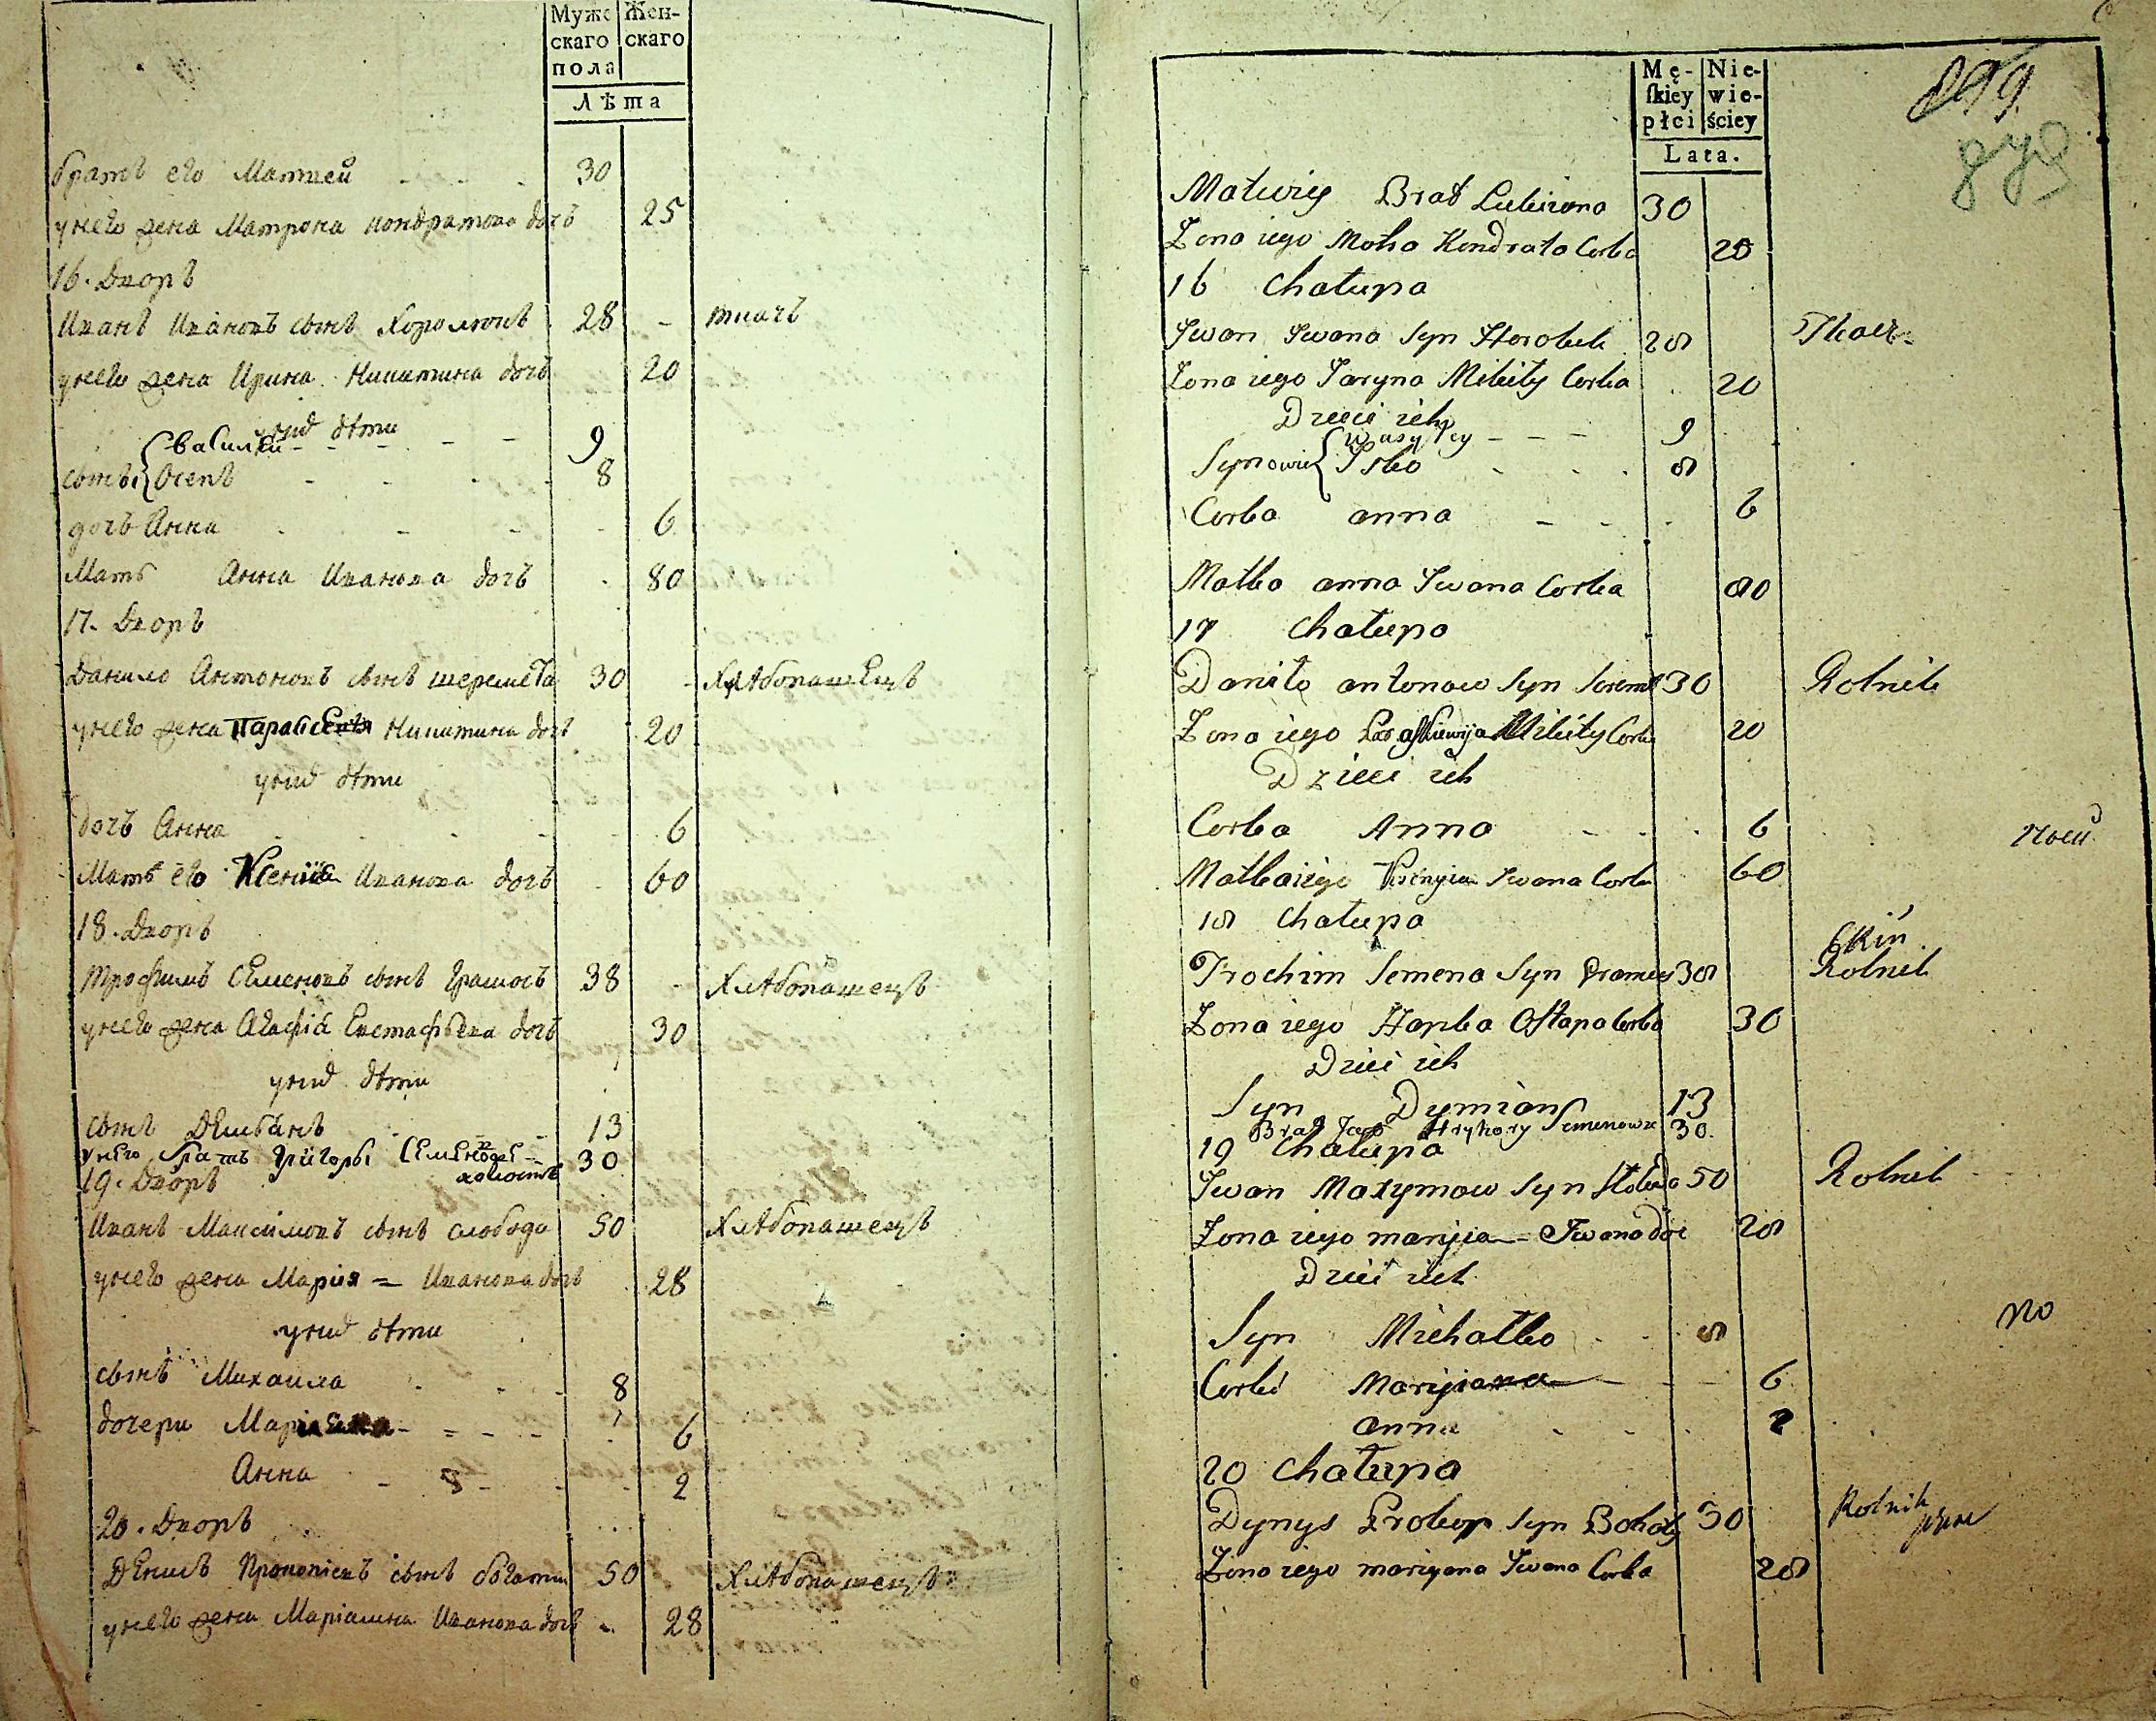 Муже
скаго
пола
Жен-
скаго
Лѣта
братъ его Матвей - - - 30
унего жена Матрона кондратова дочь 25
16. Дворъ
Иванъ Ивановъ сынъ 28 - ткачь
унего жена Ирина Никитина дочь 20
унихъ дѣти
Василий - - - - 9
сыны Осепъ - - - - 8
дочь Анна - - - - 6
Мать Анна Иванова дочь - 80
17. Дворъ
Данило Антоновъ сынъ шеремета 30 - Хлѣбопашецъ
унего жена Никитина дочь 20
унихъ дѣти
дочь Анна - - - - 6
Мать его Ксенiя Иванова дочь - 60
18. Дворъ
Трофимъ Семеновъ сынъ 38 - Хлѣбопашецъ
унего жена Агафiа Евстафьева дочь 30
унихъ дѣти
сынъ Демьанъ - - - 13
унего братъ Григорьі Семеновъ - 30
холостъ
19. Дворъ
Иванъ Максимовъ сынъ слобода 50 Хлѣбопашецъ
унего жена Марiя = Иванова дочь 28
унихъ дѣти
сынъ Михаила - - - 8
дочери - = - - - 6
Анна - - - - 2
20. Дворъ
Денисъ Прокопiевъ сынъ 50 Хлѣбопашецъ
унего жена Марiанна Иванова дочь - 28
Mę-
ſkiey
płci
Nie-
wie-
ściey
Lata.
899.
Matwiey Brat 30
Zona iego Kondrata Corka
16 Chałupa
Jwan Jwana Syn 28 Tkacz
Zona iego Jaryna Mikity Corka 20
Dzieci ich
Wasyley - - - 9
Synowie Jsko - - - 8
Corka anna - - - 6
Matka anna Jwana Corka 80
17 Chałupa
Daniło antonow Syn 30 Rolnik
Zona iego Mikity Corka 20
Dzieci ich
Corka Anna - - - 6
Matka iego Jwana Corka 60
18 Chałupa
Trochim Semena Syn 38 Rolnik
Zona iego Hapka Oſtapa Corka 30
Dzieci ich
Syn Dymian 13
Brat Jego Hryhory Semenow 30.
19 Chałupa
Jwan Maxymow Syn 50 Rolnik
Zona iego maryia - Jwana 28
Dzieci ich
Syn Michałko - - 8
Corki - - - 6
anna - - - 2
20 Chałupa
Dynys Prokop Syn Bohaty 50 Rolnik
Zona iego maryana Jwana Corka 28